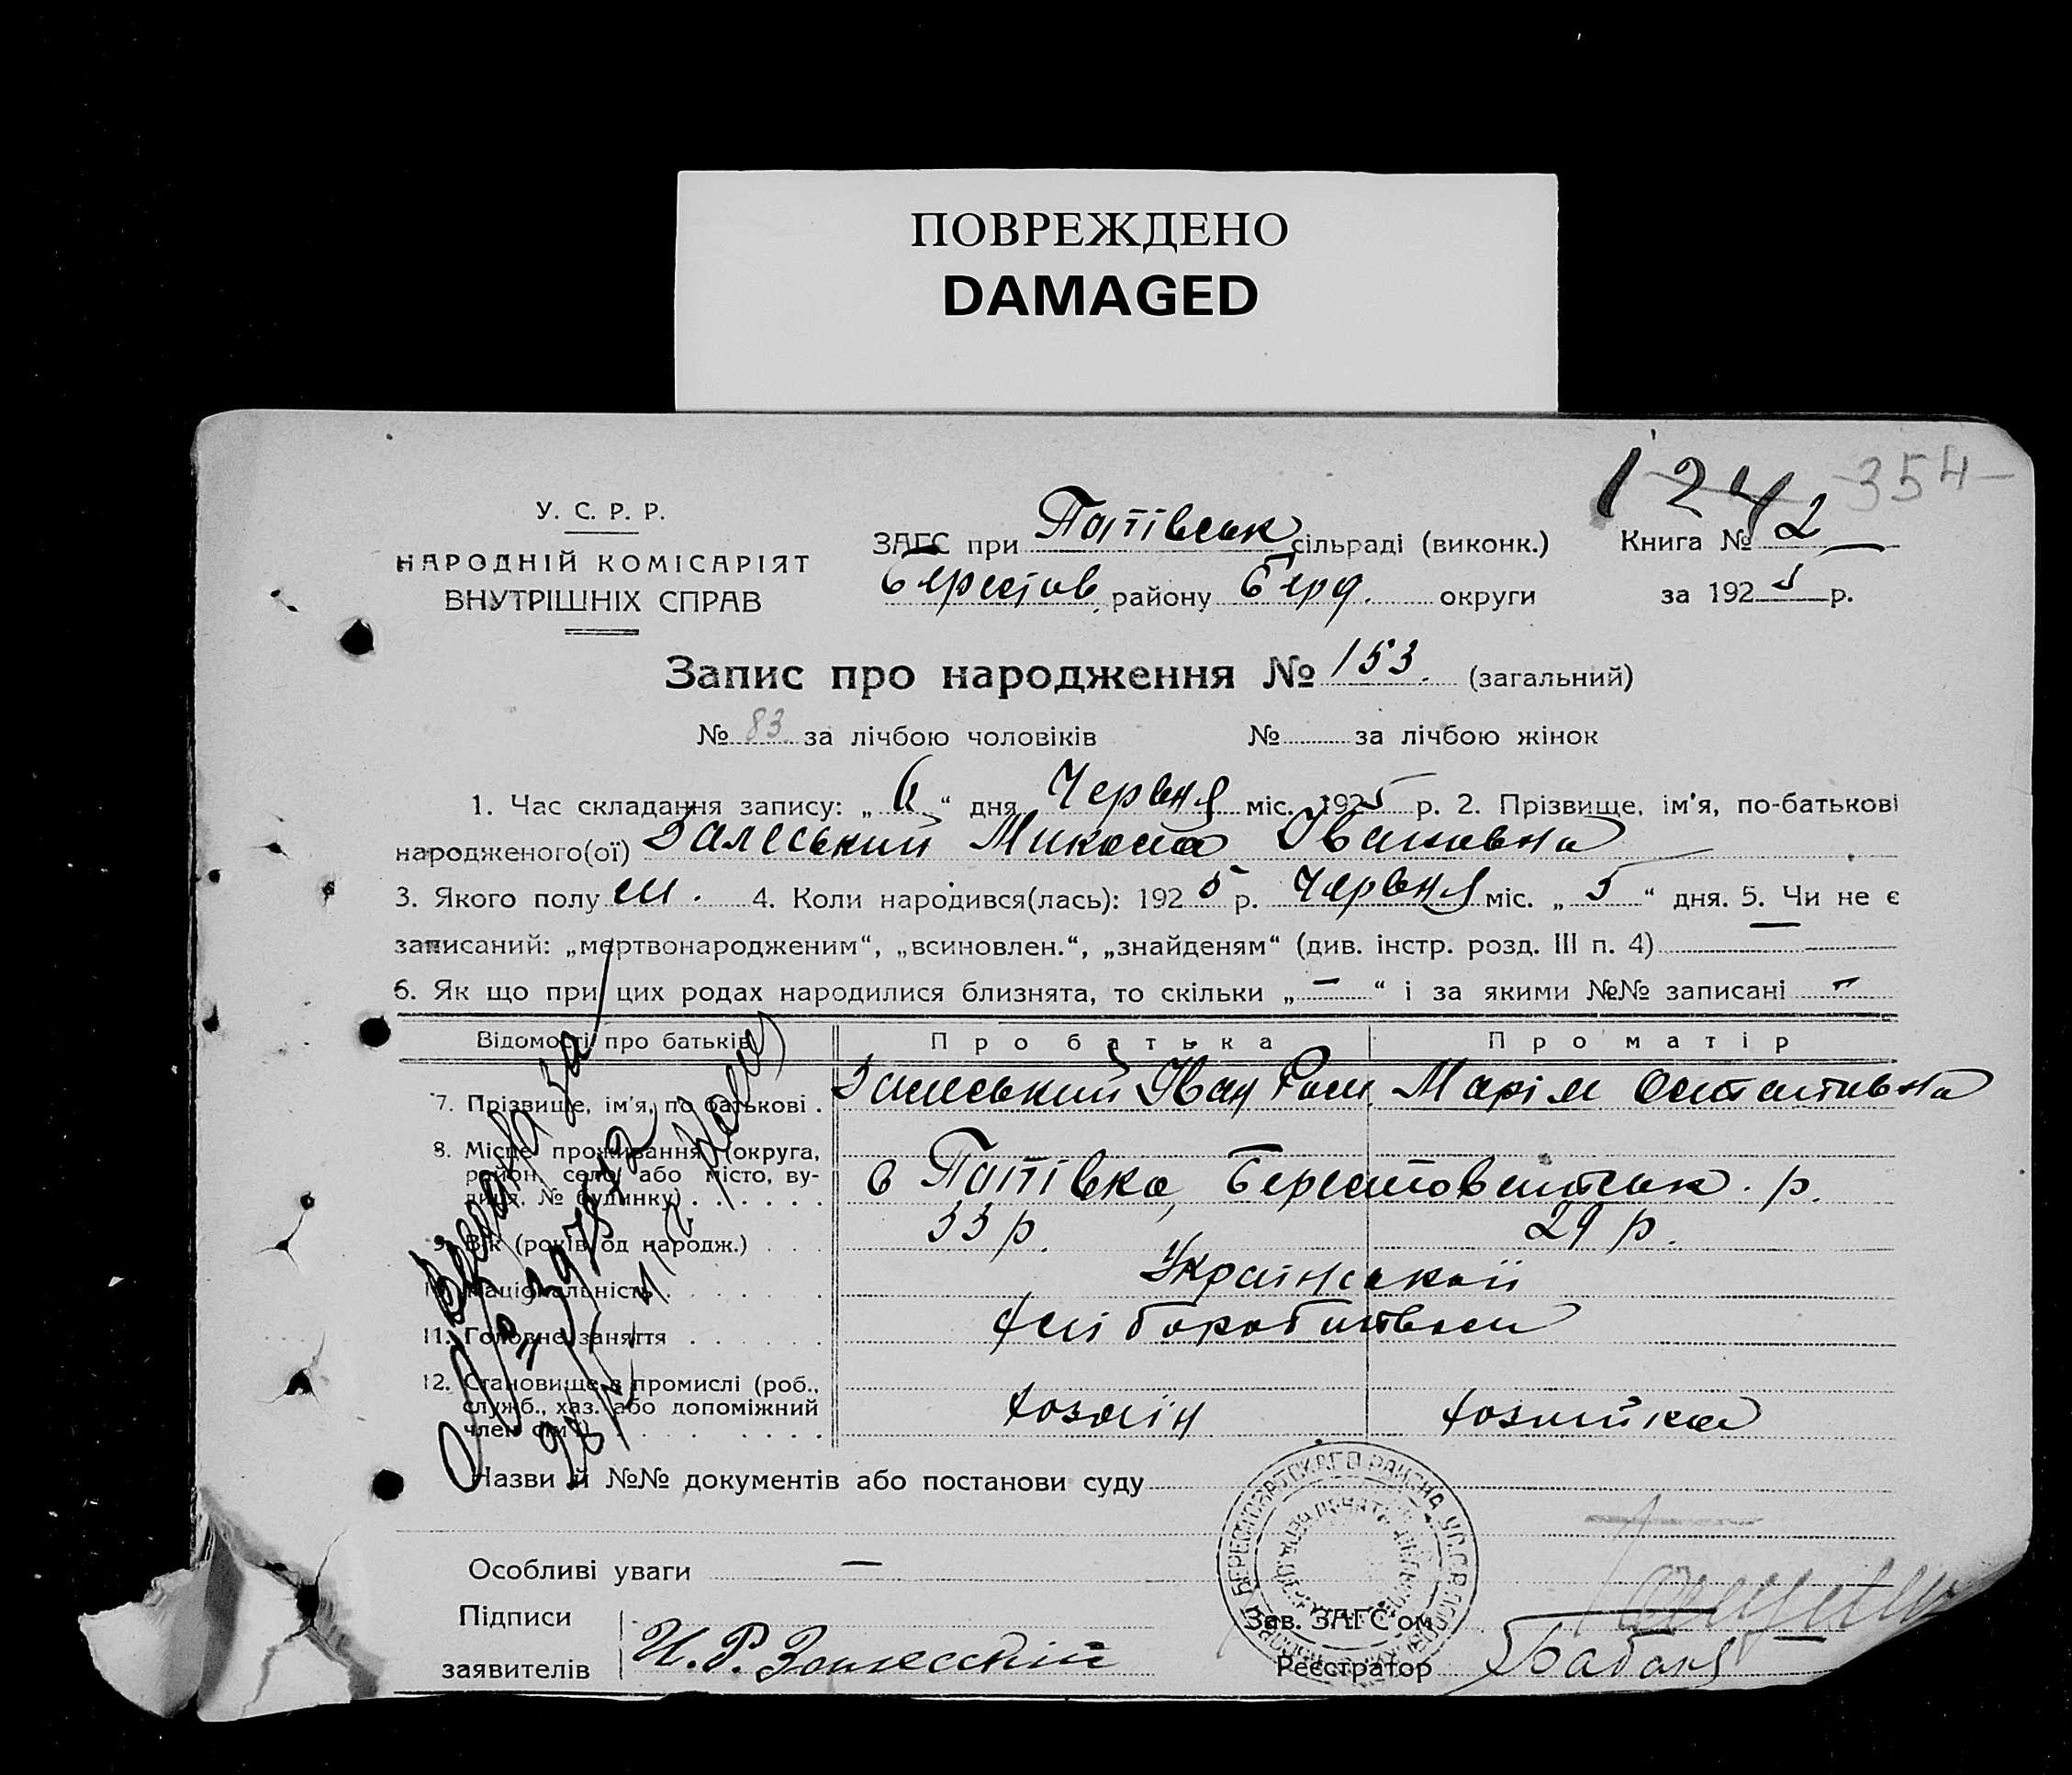 ПОВРЕЖДЕНО
DAMAGED
1242 354
У. С. Р. Р.
НАРОДНІЙ КОМІСАРІЯТ
ВНУТРІШНІХ СПРАВ
ЗАГС при Попівськ сільраді (виконк.) Книга № 2
Берестов. району Берд. округи за 1925 р.
Запис про народження № 153. (загальний)
№ 83 за лічбою чоловіків № за лічбою жінок
1. Час складання запису: „ 6 “ дня Червня міс. 1925 р. 2. Прізвище, ім'я, по-батькові
народженого(ої) Залеський Микола Івановна
3. Якого полу ч. 4. Коли народився(лась): 1925 р. Червня міс. „ 5 “ дня. 5. Чи не є
записаний: „мертвонародженим“, „всиновлен.“, „знайденям“ (див. інстр. розд. III п. 4) —
6. Як що при цих родах народилися близнята, то скільки „ — “ і за якими №№ записані —
Відомості про батьків Про батька Про матір
7. Прізвище, ім'я, по батькові . Залеський Іван Ром. Марія Остаповна
8. Місце проживання (округа,
район, село або місто, ву-
лиця, № будинку) . . . . . . с Попівка, Берестовеитськ. р.
9. Вік (років од народж.) . . . 33 р. 29 р.
10. Національність . . . . . . Українскої
11. Головне заняття . . . . . . хліборобитвом
12. Становище в промислі (роб.,
служб., хаз. або допоміжний
член сім'ї) . . . . . . . . хозяїн хозяйка
Назви й №№ документів або постанови суду
Особливі уваги —
Підписи
заявителів И. Р. Залесский
Зав. ЗАГС'ом
Реєстратор